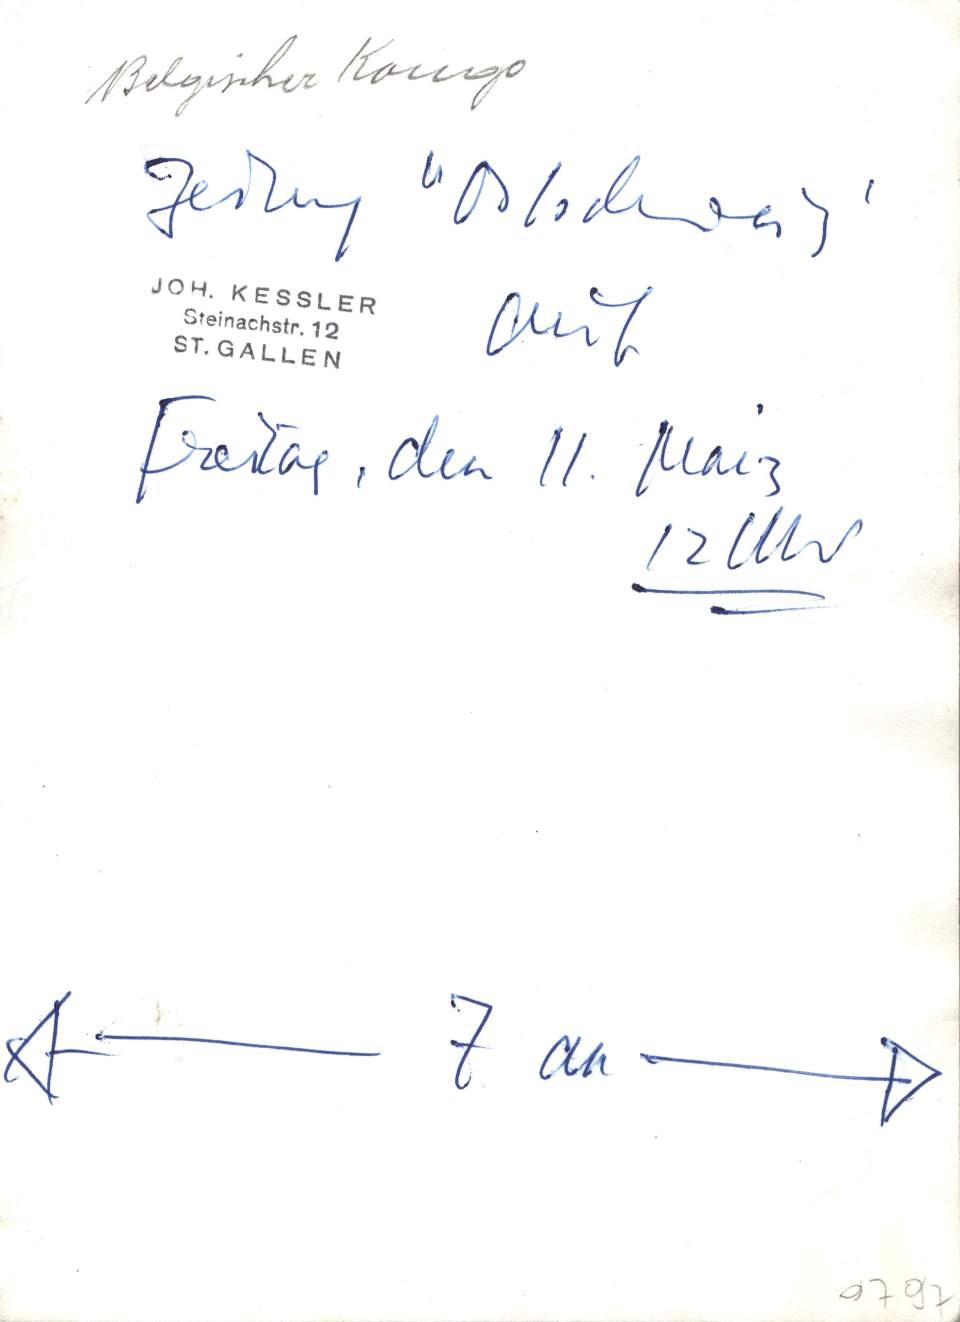 Belgischer Kongo
Zeitung "Ostschweiz"
JOH. KESSLER
Steinachstr. 12
ST. GALLEN
auf
Freitag, den 11. März
12 Uhr
7 cm